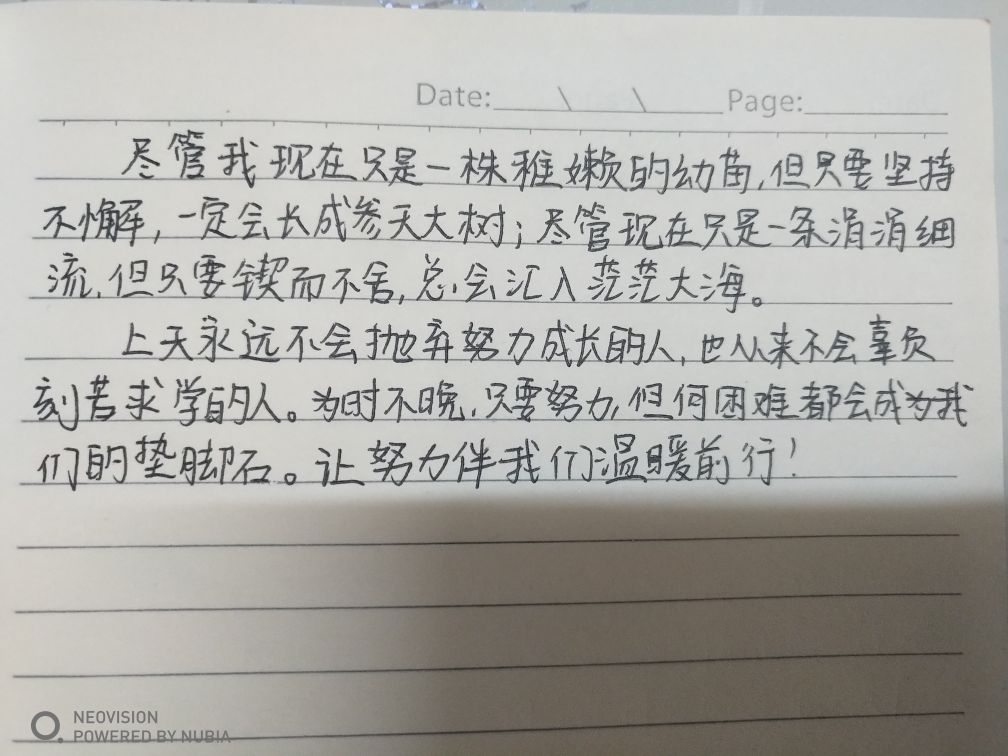 Date: \ \ Page:
尽管我现在只是一株稚嫩的幼苗,但只要坚持
不懈,一定会长成参天大树;尽管现在只是一条涓涓细
流,但只要锲而不舍,总会汇入茫茫大海。
上天永远不会抛弃努力成长的人,也从来不会辜负
刻苦求学的人。为时不晚,只要努力,但何困难都会成为我
们的垫脚石。让努力伴我们温暖前行!
NEOVISION
POWERED BY NUBIA